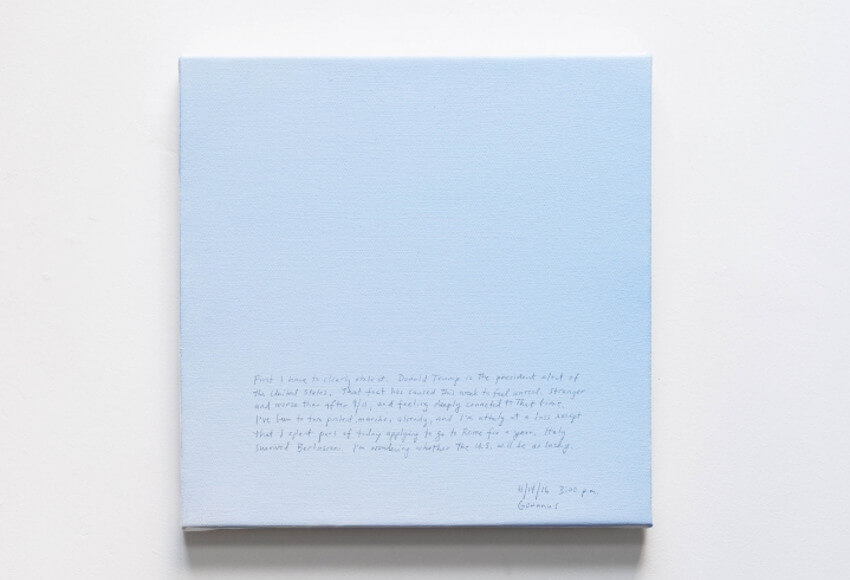 First I have to clearly state it. Donald Trump is the president elect of
the United States. That fact has caused this week to feel unreal. Stranger
and worse than after 9/11, and feeling deeply connected to that time.
I've been to two protest marches, already, and I'm utterly at a loss except
that I spent part of today applying to go to Rome for a year. Italy
survived Berlusconi. I'm wondering whether the U.S. will be as lucky.
11/14/16 3:00 p.m.
Gowanus